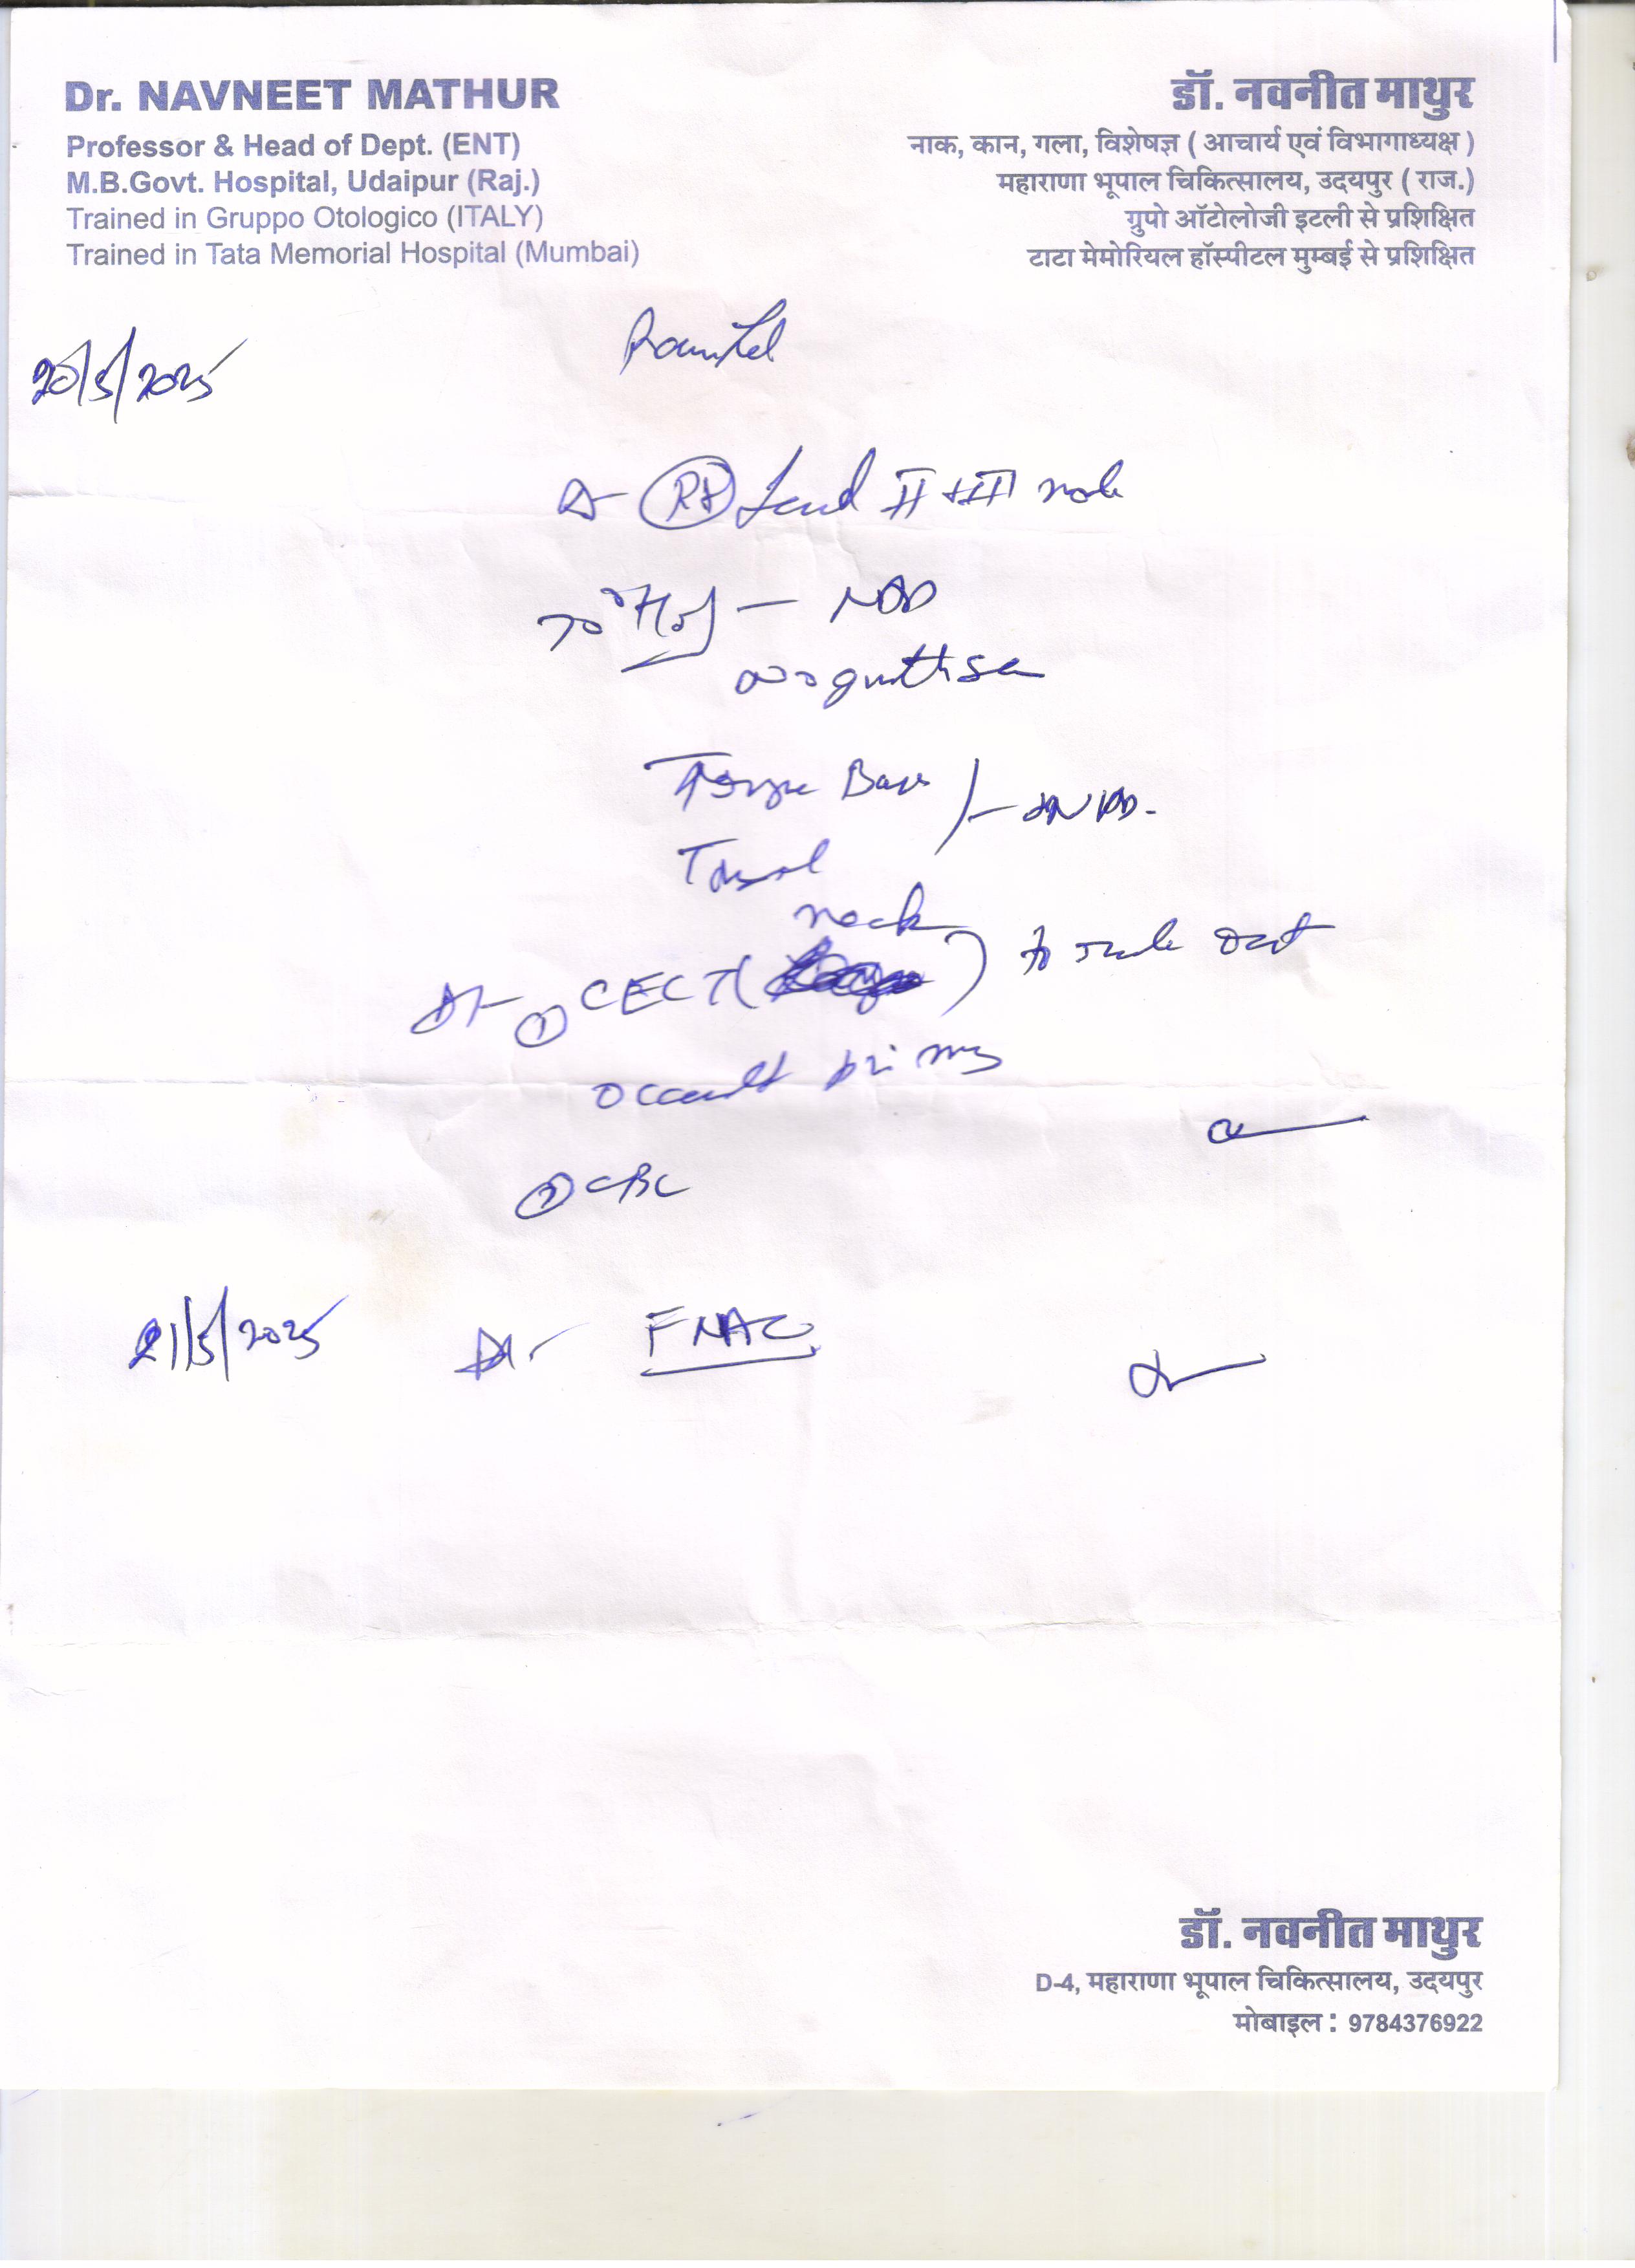 Dr. NAVNEET MATHUR
Professor & Head of Dept. (ENT)
M.B.Govt. Hospital, Udaipur (Raj.)
Trained in Gruppo Otologico (ITALY)
Trained in Tata Memorial Hospital (Mumbai)
डॉ. नवनीत माथुर
नाक, कान, गला, विशेषज्ञ ( आचार्य एवं विभागाध्यक्ष )
महाराणा भूपाल चिकित्सालय, उदयपुर ( राज.)
ग्रुपो ऑटोलोजी इटली से प्रशिक्षित
टाटा मेमोरियल हॉस्पीटल मुम्बई से प्रशिक्षित
20/5/2025
Rt level II + III node
70° - NAD
Tongue Base
- NAD.
Tonsil
neck
① CECT ( ) to rule out
occult primary
② CBC
21/5/2025 FNAC
डॉ. नवनीत माथुर
D-4, महाराणा भूपाल चिकित्सालय, उदयपुर
मोबाइल : 9784376922